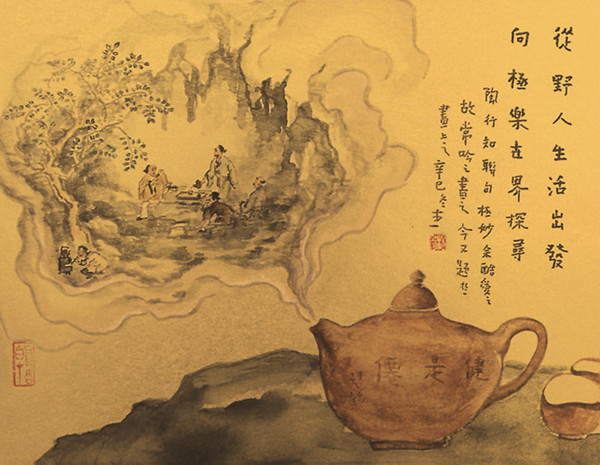 從野人生活出發
向極樂世界探尋
陶行知聯句極妙余酷愛之
故常吟之書之今又題於
畫上 辛巳冬
健是僊